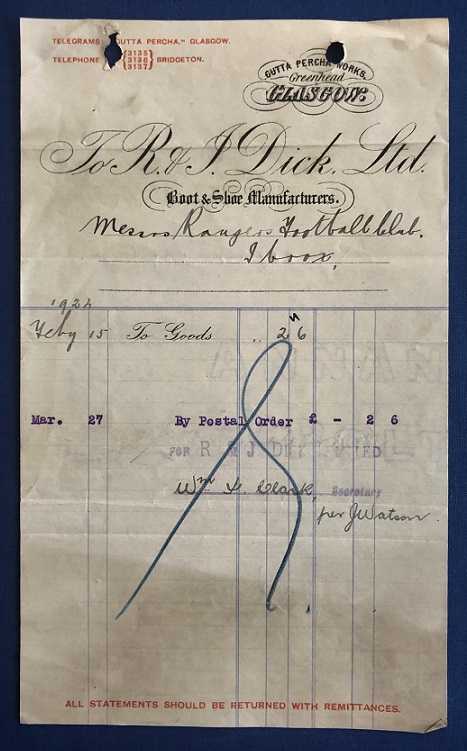 TELEGRAMS: "GUTTA PERCHA," GLASGOW.
TELEPHONE 3135 3136 3137 BRIDGETON.
GUTTA PERCHA WORKS.
Greenhead
GLASGOW.
To R. & J. Dick. Ltd.
Boot & Shoe Manufacturers.
Messrs Rangers Football Club.
Ibrox,
1922
Feby 15 To Goods " 2 6
Mar. 27 By Postal Order £ - 2 6
FOR R & J DICK LIMITED
Wm Clark, Secretary
per J Watson.
ALL STATEMENTS SHOULD BE RETURNED WITH REMITTANCES.